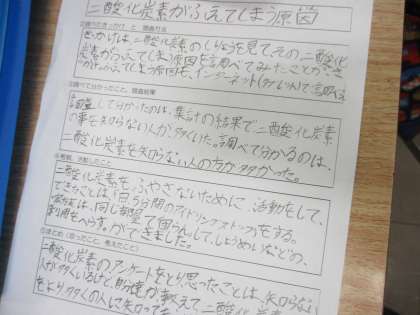 二酸化炭素がふえてしまう原因
きっかけは、二酸化炭素のしりょうを見てその二酸化
炭素がふえてしまう原因を調べてみたことが、き
調査して分かったのは、集計の結果で二酸化炭素
の事を知らない人が、多くいた。調べて分かるのは、
二酸化炭素を知らない人の方が多かった。
二酸化炭素をふやさないために、活動をして、
できたことは、1日5分間のアイドリングストップをする。
家族は、同じ部屋で団らんして、しょうめいなどの、
利用をへらす。ができました。
二酸化炭素のアンケートをとり、思ったことは、知らない
人が多くいるけど、自分達が教えて二酸化
をとり、多くの人に知って